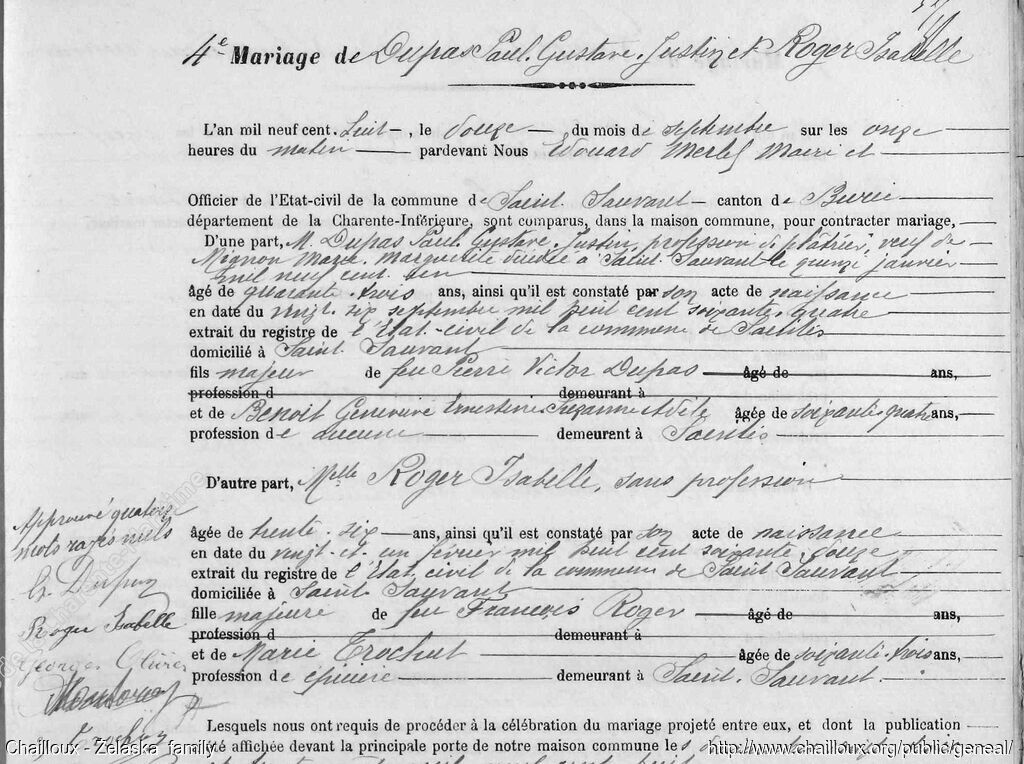 4e Mariage de Dupas Paul Gustave Justin et Roger Isabelle
L'an mil neuf cent huit, le douze du mois de septembre sur les onze
heures du matin pardevant Nous Edouard Merle Maire et
Officier de l'Etat-civil de la commune de Saint Sauvant canton de Burie
département de la Charente-Inférieure, sont comparus, dans la maison commune, pour contracter mariage,
D'une part, M. Dupas Paul Gustave Justin, profession de plâtrier, veuf de
Mignon Marie Marguerite décédée à Saint Sauvant le quinze janvier
mil neuf cent un
âgé de quarante-trois ans, ainsi qu'il est constaté par son acte de naissance
en date du vingt-six septembre mil huit cent soixante-quatre
extrait du registre de l'Etat-civil de la commune de Saintes
domicilié à Saint Sauvant
fils majeur de feu Pierre Victor Dupas âgé de ans,
profession d demeurant à
et de Benoit Geneviève Ernestine Suzanne Adèle âgée de soixante-quatre ans,
profession de aucune demeurant à Saintes
D'autre part, Melle Roger Isabelle, sans profession
âgée de trente-six ans, ainsi qu'il est constaté par son acte de naissance
en date du vingt-et-un février mil huit cent soixante-douze
extrait du registre de l'Etat civil de la commune de Saint Sauvant
domiciliée à Saint Sauvant
fille majeure de feu François Roger âgé de ans,
profession d demeurant à
et de Marie Trochut âgée de soixante-trois ans,
profession de épicière demeurant à Saint Sauvant
Lesquels nous ont requis de procéder à la célébration du mariage projeté entre eux, et dont la publication
été affichée devant la principale porte de notre maison commune les
Approuvé quatorze
mots rayés nuls
Roger Isabelle
Georges
Chailloux - Zelaska family
http://www.chailloux.org/public/geneal/